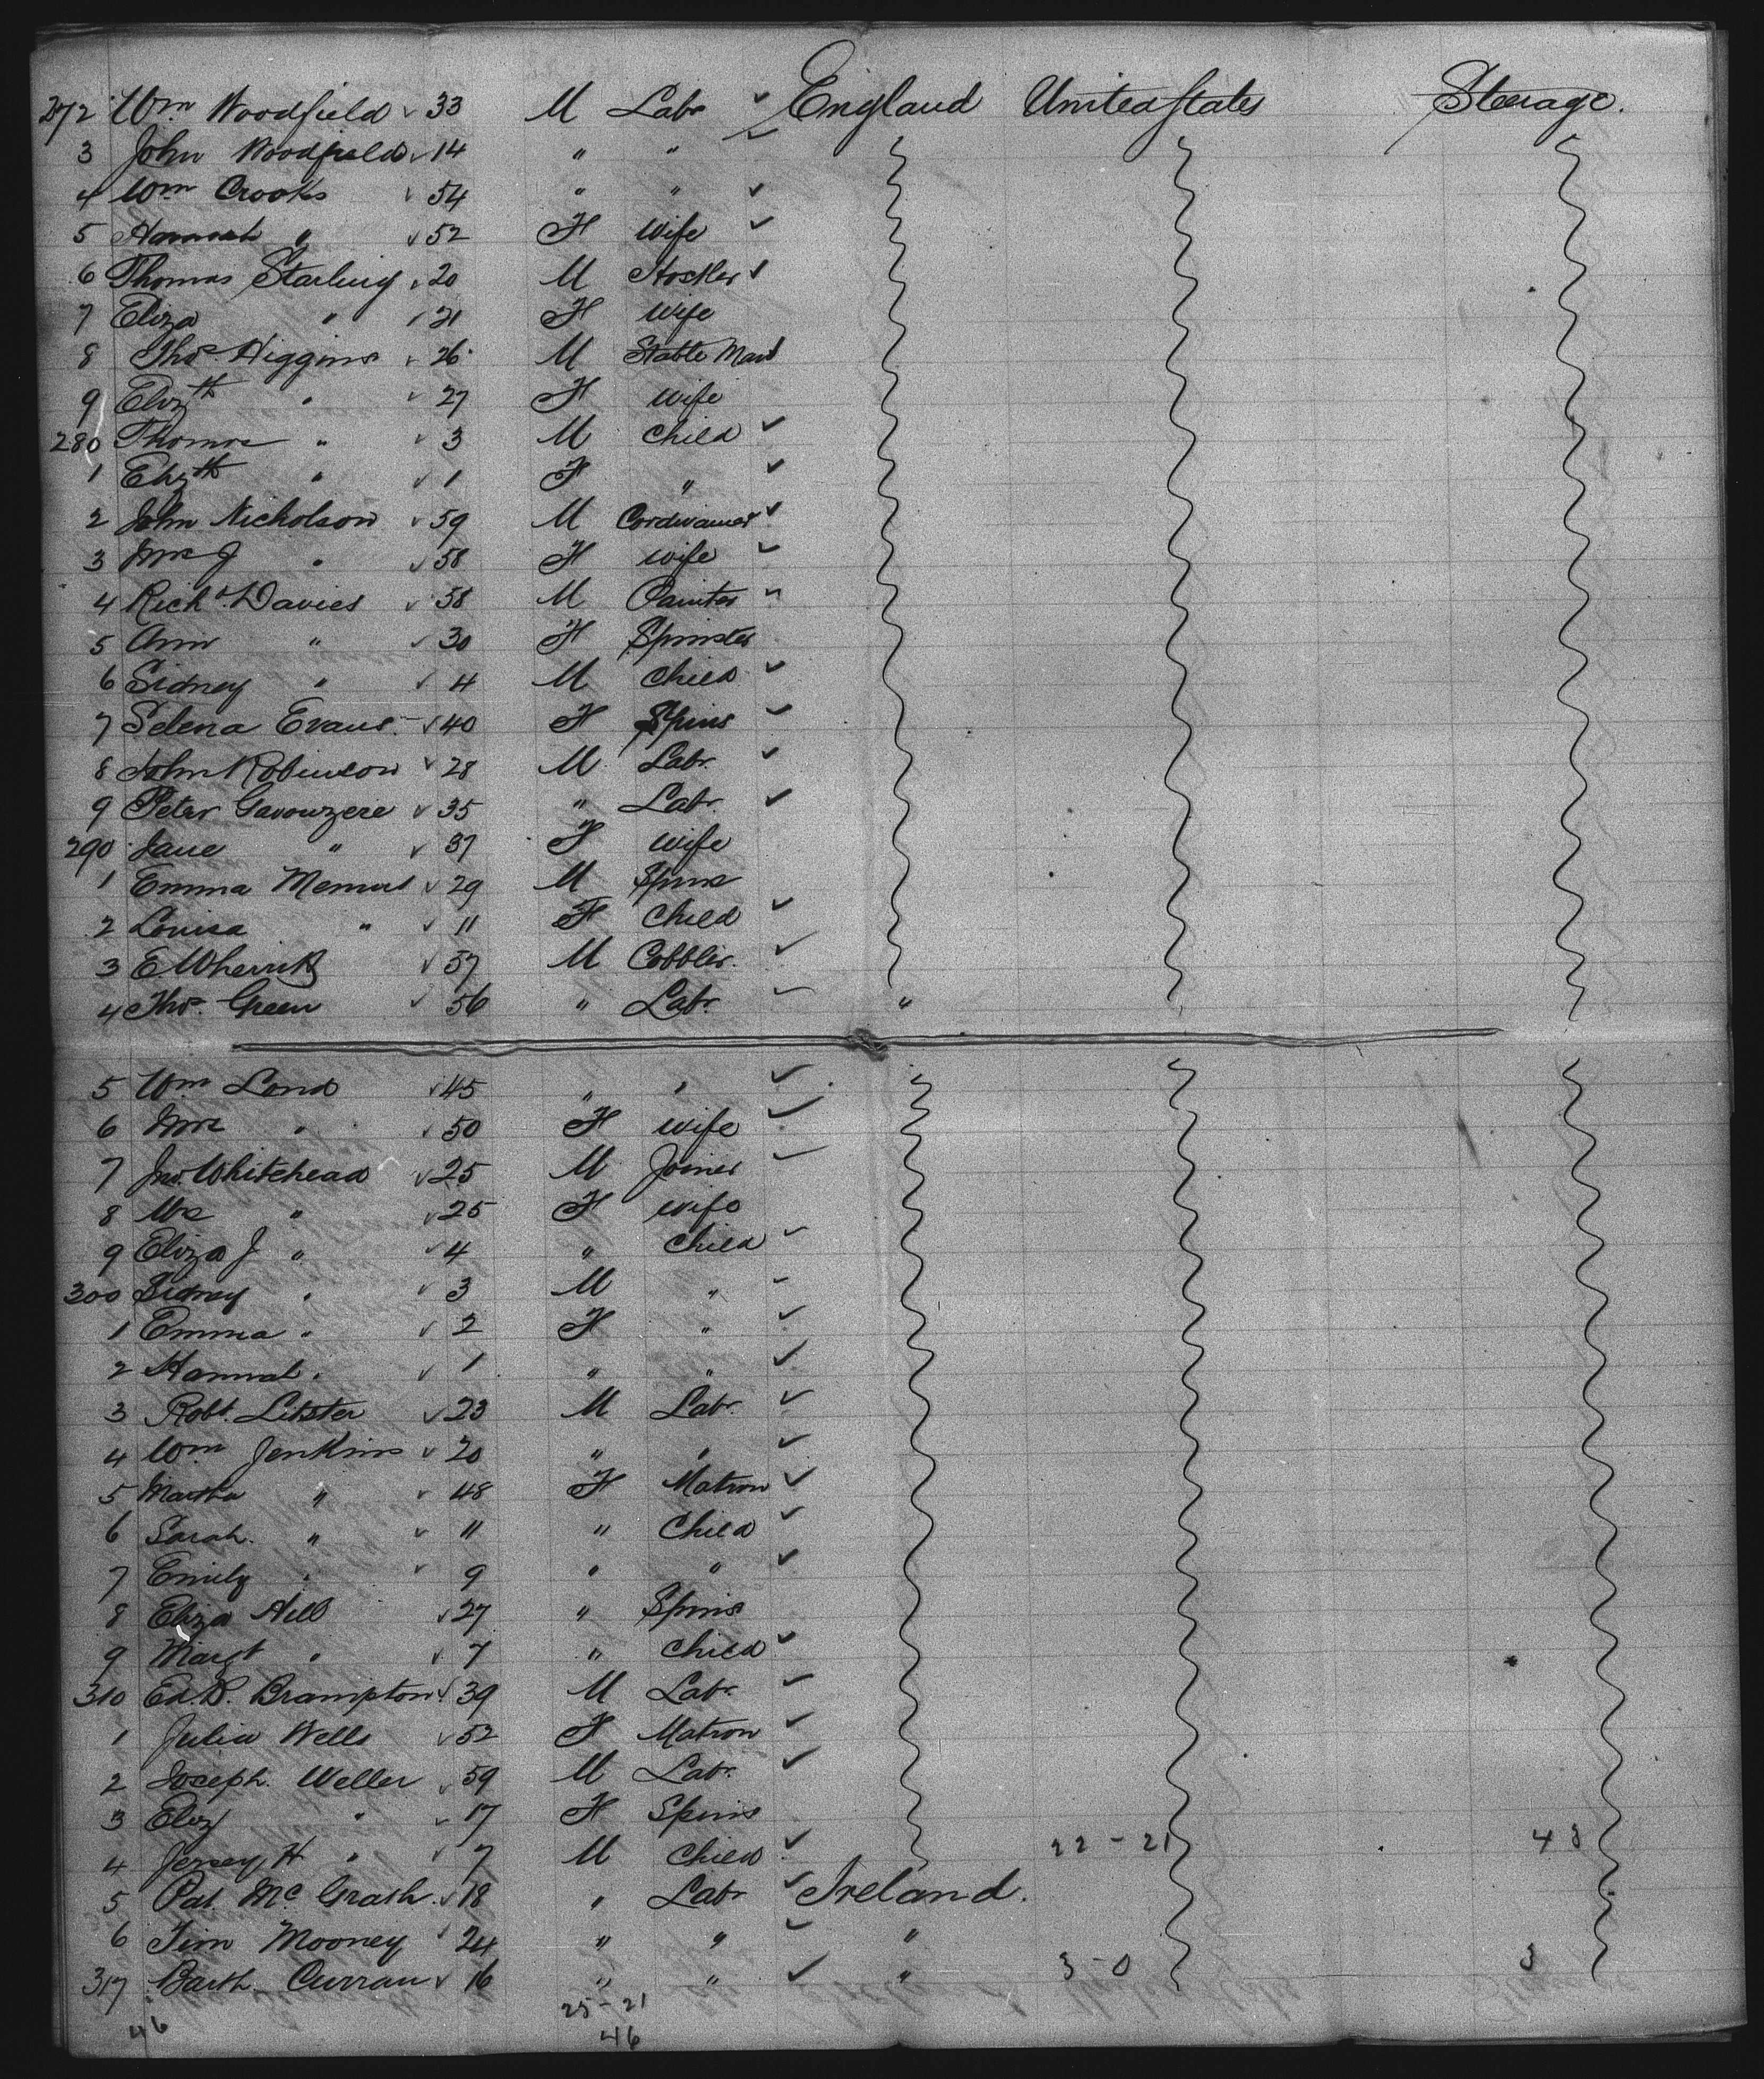 272 Wm Woodfield 33 M Labr England United States Steerage.
3 John Woodfield 14 " "
4 Wm Crooks 54 " "
5 Hannah " 52 F Wife
6 Thomas Starling 20 M Hostler
7 Eliza " 21 F Wife
8 Thos. Higgins 26 M Stable Man
9 Elizth " 27 F Wife
280 Thomas " 3 M Child
1 Elizth " 1 F "
2 John Nicholson 59 M Cordwainer
3 Mrs J " 58 F Wife
4 Richd. Davies 58 M Painter
5 Ann " 30 F Spinster
6 Sidney " 4 M Child
7 Selena Evans 40 F Spins
8 John Robinson 28 M Labr.
9 Peter 35 " Labr.
290 Jane " 37 F Wife
1 Emma 29 M Spins
2 Louisa " 11 F Child
3 E 57 M Cobbler.
4 Thos. Green 56 " Labr. "
5 Wm Lond 45 " "
6 Mrs " 50 F Wife
7 Jno. Whitehead 25 M Joiner
8 Mrs " 25 F Wife
9 Eliza J " 4 " Child
300 Sidney " 3 M "
1 Emma " 2 F "
2 Hannah " 1 " "
3 Robt. Litster 23 M Labr.
4 Wm Jenkins 20 " "
5 Martha " 48 F Matron
6 Sarah. " 11 " Child
7 Emily " 9 " "
8 Eliza Hill 27 " Spins
9 Margt " 7 " Child
310 Ed. B. Brampton 39 M Labr.
1 Julia Wells 52 F Matron
2 Joseph. Weller 59 M Labr.
3 Eliz " 17 F Spins
4 H " 7 M Child 22 - 21 43
5 Pat. Mc Grath. 18 " Labr Ireland.
6 Tim Mooney 24 " " "
317 Barth. Curran 16 " " " 3 - 0 3
46 25 - 21
46